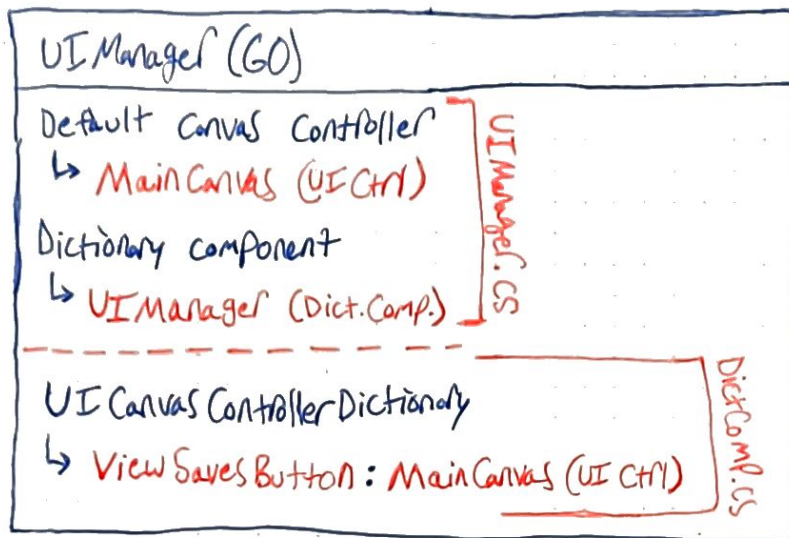 UIManager (GO)
Default Canvas Controller
↳ MainCanvas (UI Ctrl)
Dictionary Component
↳ UIManager (Dict.Comp.)
UIManager.cs
UICanvasControllerDictionary
↳ ViewSavesButton: MainCanvas (UI Ctrl)
DictComp.cs